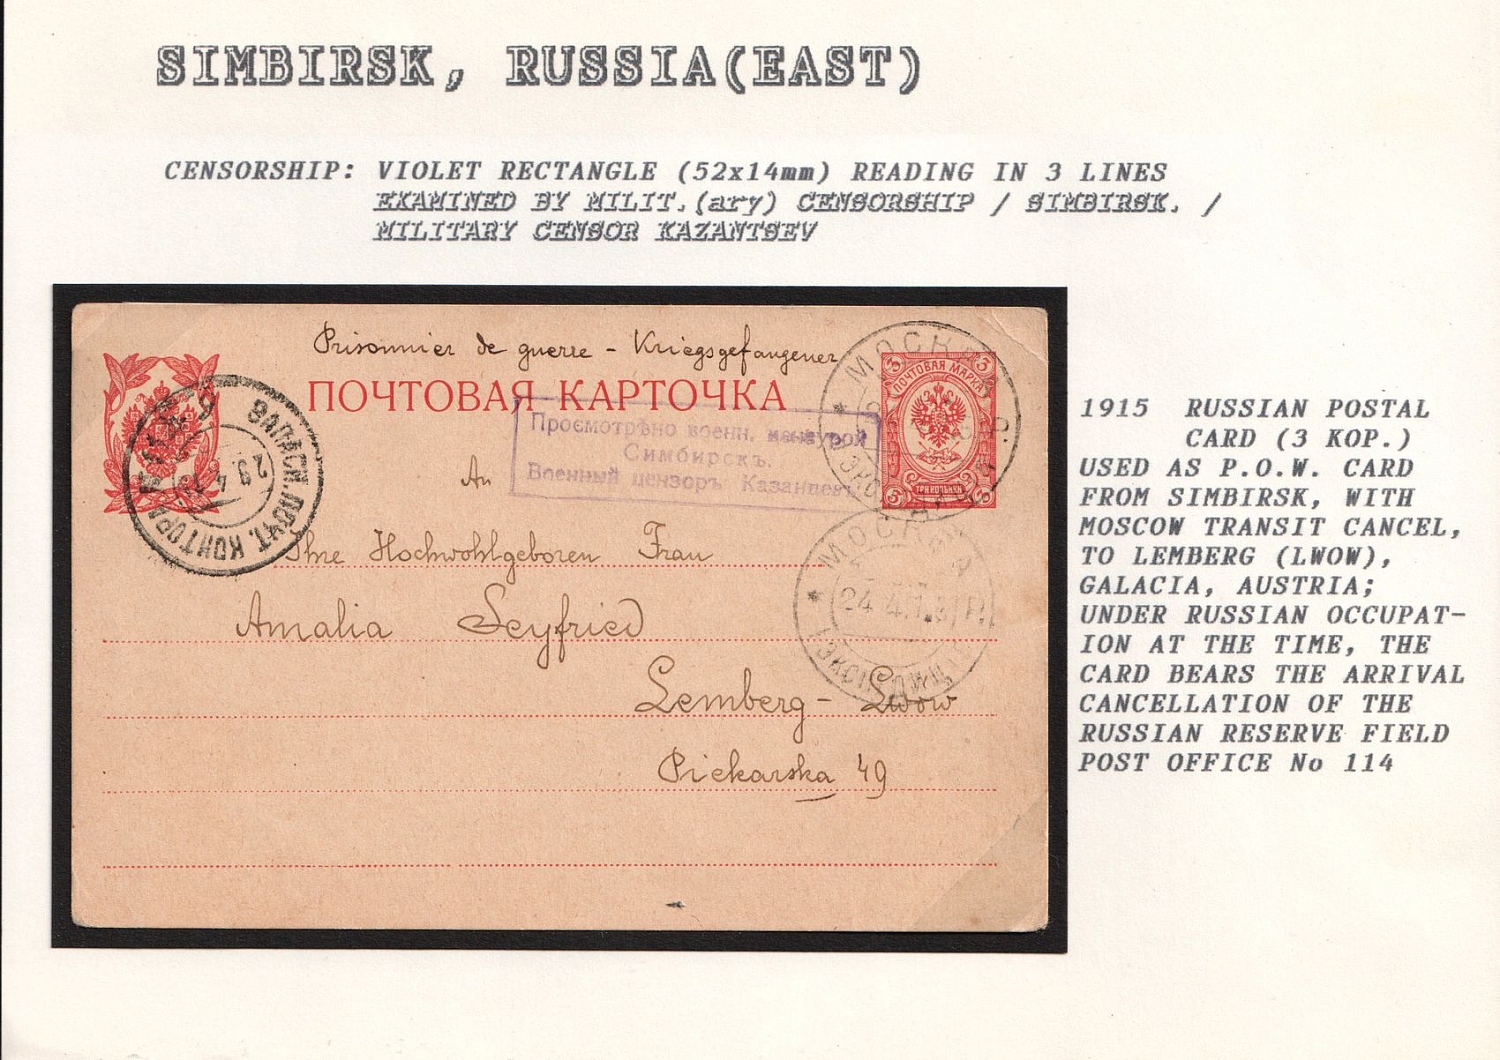 SIMBIRSK, RUSSIA(EAST)
CENSORSHIP: VIOLET RECTANGLE (52x14mm) READING IN 3 LINES
EXAMINED BY MILIT.(ary) CENSORSHIP / SIMBIRSK. /
MILITARY CENSOR KAZANTSEV
Prisonnier de guerre - Kriegsgefangener
ПОЧТОВАЯ КАРТОЧКА
Просмотрѣно военн. цензурой
Симбирскъ.
Военный цензоръ Казанцевъ
3 3
ПОЧТОВАЯ МАРКА
3 3
ТРИ КОПѢЙКИ
МОСКВА
ЗАПАСН. ПОЧТ. КОНТОРА
29 4 15
МОСКВА
24.4.15
An
Ihre Hochwohlgeboren Frau
Amalia Seyfried
Lemberg - Lwów
Piekarska 49
1915 RUSSIAN POSTAL
CARD (3 KOP.)
USED AS P.O.W. CARD
FROM SIMBIRSK, WITH
MOSCOW TRANSIT CANCEL,
TO LEMBERG (LWOW),
GALACIA, AUSTRIA;
UNDER RUSSIAN OCCUPAT-
ION AT THE TIME, THE
CARD BEARS THE ARRIVAL
CANCELLATION OF THE
RUSSIAN RESERVE FIELD
POST OFFICE No 114